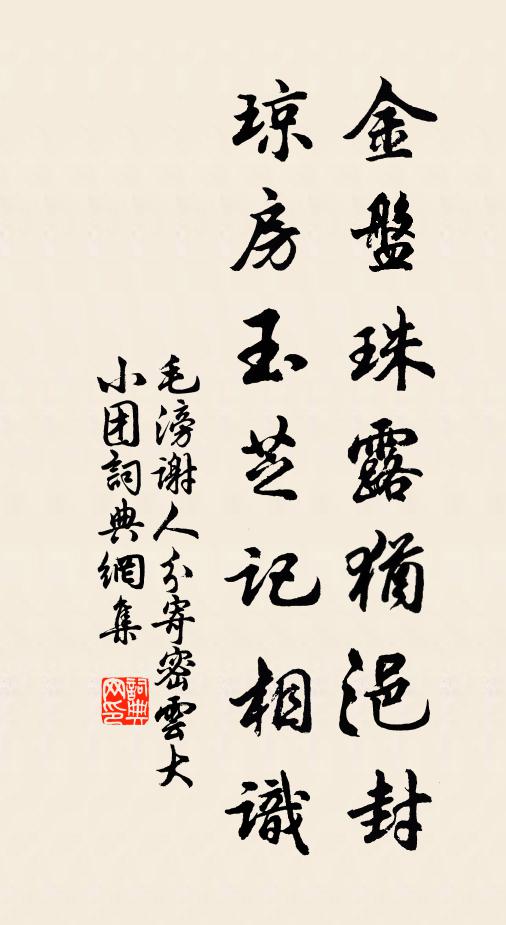 金盤珠露猶浥封
琼房玉芝记相識
毛滂谢人分寄密雲大
小团詞典網集
詞典网印